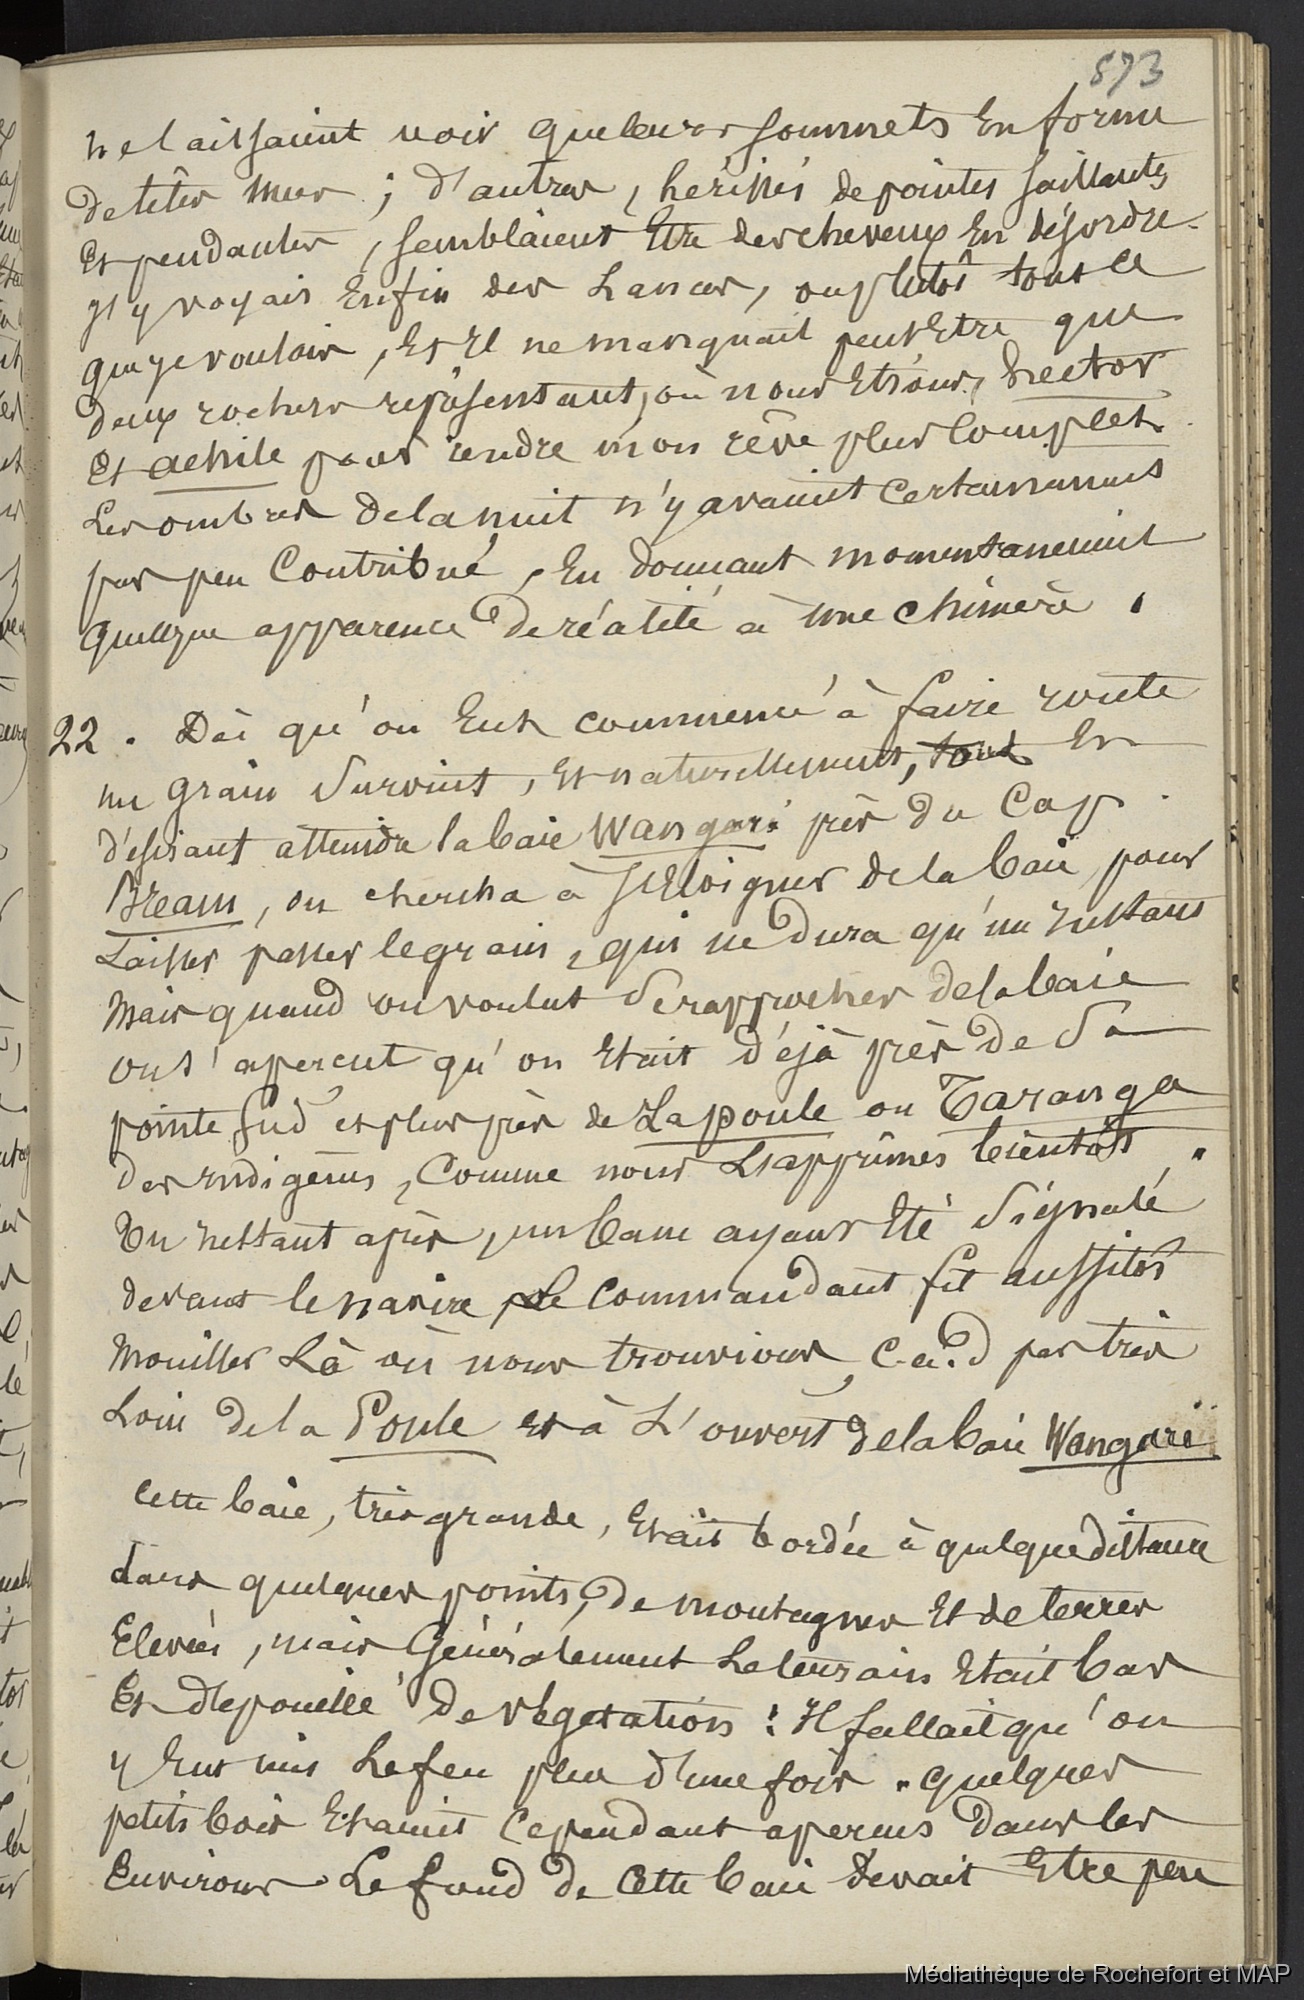 573
ne laissaient voir que leurs sommets en forme
de têtes nues ; d'autres, hérissés de pointes saillantes
et pendantes, semblaient etre des cheveux en désordre.
J'y voyais enfin des Lances, ou plutôt tout ce
que je voulais, et il ne manquait peut etre que
deux rochers représentant, où nous etions, hector
et achile pour rendre mon rêve plus complet.
Les ombres de la nuit n'y avaient certainement
pas peu contribué, en donnant momentanément
quelque apparence de réalité à une chimère.
22. Dès qu'on eut commencé à faire route
un grain survint, et naturellement, tout en
désirant atteindre la baie Wangari près du Cap
Bream, on chercha à s'eloigner de la baie, pour
laisser passer le grain, qui ne dura qu'un instant
Mais quand on voulut se rapprocher de la baie
on s'aperçut qu'on etait déjà près de sa
pointe sud et plus près de La poule ou Taranga
des indigènes, comme nous l'apprîmes bientôt.
Un instant après, un banc ayant eté signalé
devant le navire, Le commandant fit aussitôt
mouiller Là où nous trouvions, c.a.d pas très
Loin de la Poule et à L'ouvert de la baie Wangari
cette baie, très grande, etait bordée à quelque distance
dans quelques points, de montagnes et de terres
elevées, mais Généralement Le terrain etait bas
et dépouillé de végétation : Il fallait qu'on
y eut mis Le feu plus d'une fois. quelques
petits bois etaient cependant aperçus dans les
environs. Le fond de cette baie devait etre peu
Médiathèque de Rochefort et MAP